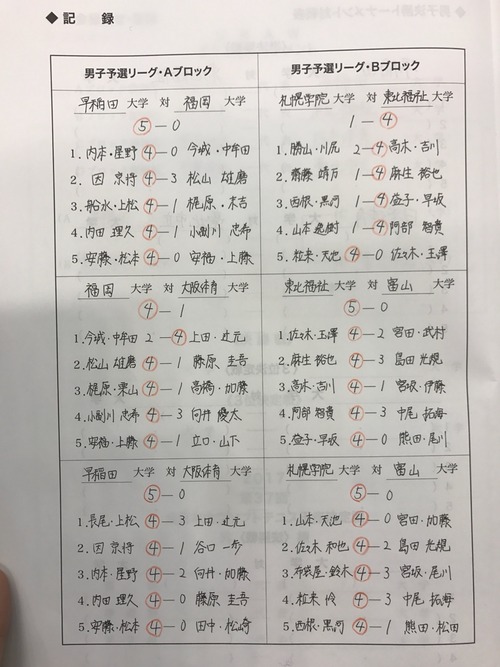 ◆ 記 録
男子予選リーグ・Aブロック
早稲田 大学 対 福岡 大学
⑤ー0
1. 内本・星野 ④ー0 今城・中牟田
2. 因 京将 ④ー3 松山 雄磨
3. 船水・上松 ④ー1 梶原・末吉
4. 内田 理久 ④ー1 小副川 忠希
5. 安藤・松本 ④ー0 安福・上藤
福岡 大学 対 大阪体育 大学
④ー1
1. 今城・中牟田 2ー④ 上田・辻元
2. 松山 雄磨 ④ー1 藤原 圭吾
3. 梶原・栗山 ④ー1 高橋・加藤
4. 小副川 忠希 ④ー3 向井 優太
5. 安福・上藤 ④ー1 立口・山下
早稲田 大学 対 大阪体育 大学
⑤ー0
1. 長尾・上松 ④ー3 上田・辻元
2. 因 京将 ④ー1 谷口 一歩
3. 内本・星野 ④ー2 向井・加藤
4. 内田 理久 ④ー0 藤原 圭吾
5. 安藤・松本 ④ー0 田中・松崎
男子予選リーグ・Bブロック
札幌学院 大学 対 東北福祉 大学
1ー④
1. 勝山・川尻 2ー④ 高木・吉川
2. 齋藤 靖万 1ー④ 麻生 裕也
3. 西根・黒河 1ー④ 益子・早坂
4. 山本 1ー④ 阿部 智貴
5. 粒来・天池 ④ー0 佐々木・玉澤
東北福祉 大学 対 富山 大学
⑤ー0
1. 佐々木・玉澤 ④ー2 宮田・武村
2. 麻生 裕也 ④ー3 島田 光規
3. 高木・吉川 ④ー1 宮坂・伊藤
4. 阿部 智貴 ④ー3 中尾 拓海
5. 益子・早坂 ④ー0 熊田・尾川
札幌学院 大学 対 富山 大学
⑤ー0
1. 山本・天池 ④ー0 宮田・加藤
2. 佐々木 和也 ④ー2 島田 光規
3. 布袋屋・鈴木 ④ー3 宮坂・尾川
4. 粒来 怜 ④ー3 中尾 拓海
5. 西根・黒河 ④ー1 熊田・松田